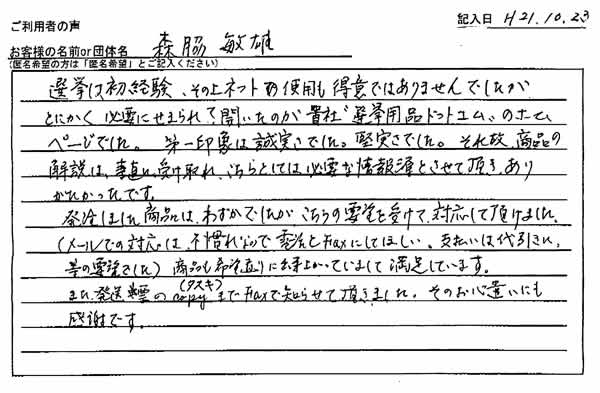 ご利用者の声
記入日 H21.10.23
お客様の名前or団体名 森脇 敏雄
(匿名希望の方は「匿名希望」とご記入ください)
選挙は初経験、その上ネットの使用も得意ではありませんでしたが
とにかく必要にせまられて開いたのが貴社"選挙用品ドットコム"のホーム
ページでした。第一印象は誠実さでした。堅実さでした。それ故、商品の
解説は、素直に受け取れ、こちらとしては必要な情報源とさせて頂き、あり
がたかったです。
発注しました商品は、わずかでしたがこちらの要望を受けて、対応して頂けました。
(メールでの対応は不慣れなので電話とFaxにしてほしい。支払いは代引きに、
等の要望でした) 商品も希望通りに出来上がっていまして満足しています。
また発送票の(タスキ)copyまでFaxで知らせて頂きました。そのお心遣いにも
感謝です。